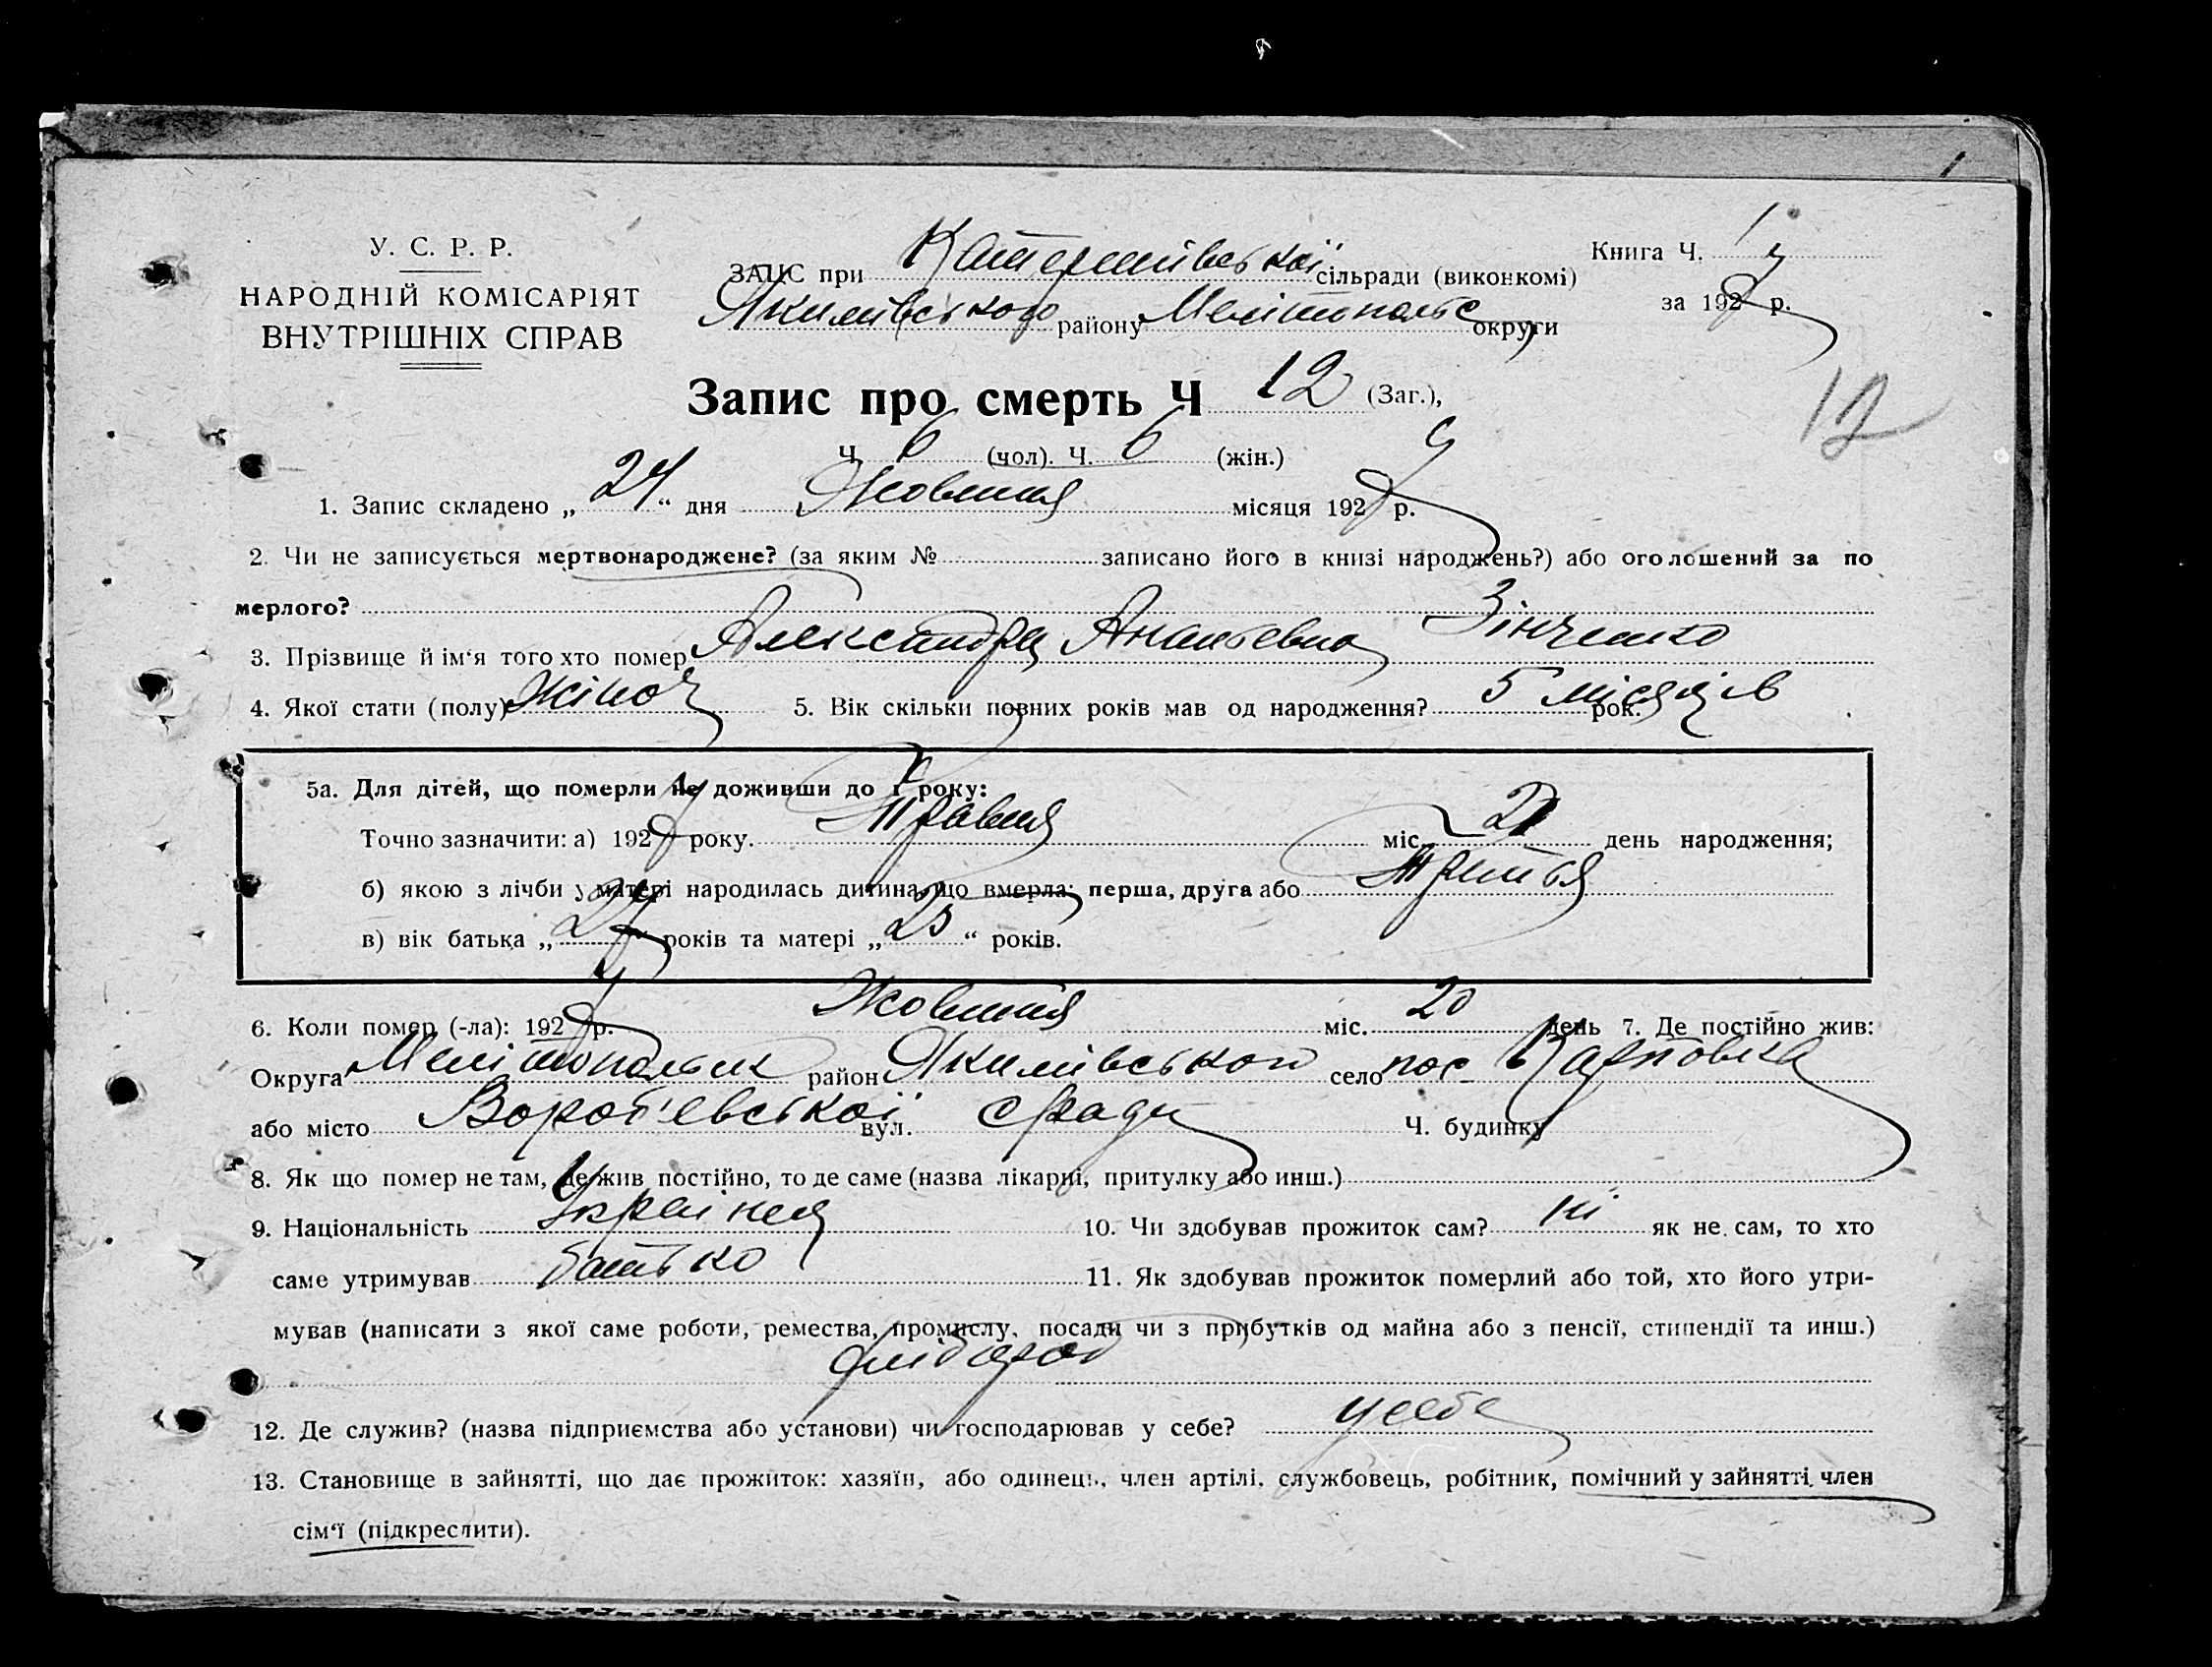 У. С. Р. Р.
НАРОДНІЙ КОМІСАРІЯТ
ВНУТРІШНІХ СПРАВ
ЗАГС при сільради (виконкомі)
Якимівського району Мелітопольс округи
Книга Ч. 1
за 192 р.
Запис про смерть Ч 12 (Заг.),
12
Ч. 6 (чол). Ч. 6 (жін.)
1. Запис складено „ 24 “ дня Жовтня місяця 1929 р.
2. Чи не записується мертвонароджене? (за яким № записано його в книзі народжень?) або оголошений за по
мерлого?
3. Прізвище й ім‘я того хто помер Александра Зінченко
4. Якої стати (полу) жіноч 5. Вік скільки повних років мав од народження? 5 місяців рок.
5а. Для дітей, що померли не доживши до 1 року:
Точно зазначити: а) 192 року. Травня міс. день народження;
б) якою з лічби у матері народилась дитина, що вмерла: перша, друга або третья
в) вік батька „ “ років та матері „ 25 “ років.
6. Коли помер (-ла): 192 р. Жовтня міс. 20 день 7. Де постійно жив:
Округа район Якимівського село пос Карповка
або місто Вороб'євської вул. с ради Ч. будинку
8. Як що помер не там, де жив постійно, то де саме (назва лікарні, притулку або инш.)
9. Національність 10. Чи здобував прожиток сам? ні як не сам, то хто
саме утримував батько 11. Як здобував прожиток померлий або той, хто його утри-
мував (написати з якої саме роботи, ремества, промислу, посади чи з прибутків од майна або з пенсії, стипендії та инш.)
хлібороб
12. Де служив? (назва підприємства або установи) чи господарював у себе? у себе
13. Становище в зайнятті, що дає прожиток: хазяїн, або одинець, член артілі, службовець, робітник, помічний у зайнятті член
сім‘ї (підкреслити).